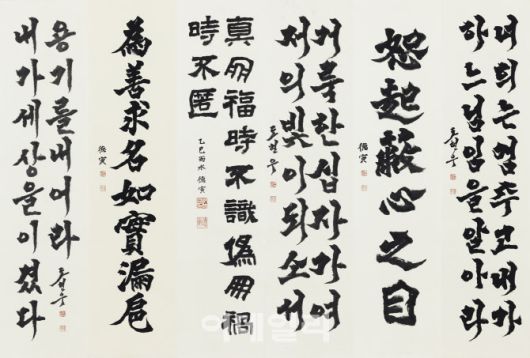 너희는 멈추고 내가
하느님임을 알아라
怒起蔽心之目
德寅
거룩한 십자가여
저의 빛이 되소서
真朋福時不識偽朋禍
時不匿
乙巳雨水 德寅
為善求名如寶漏卮
德寅
용기를 내어라
내가 세상을 이겼다
이데일리